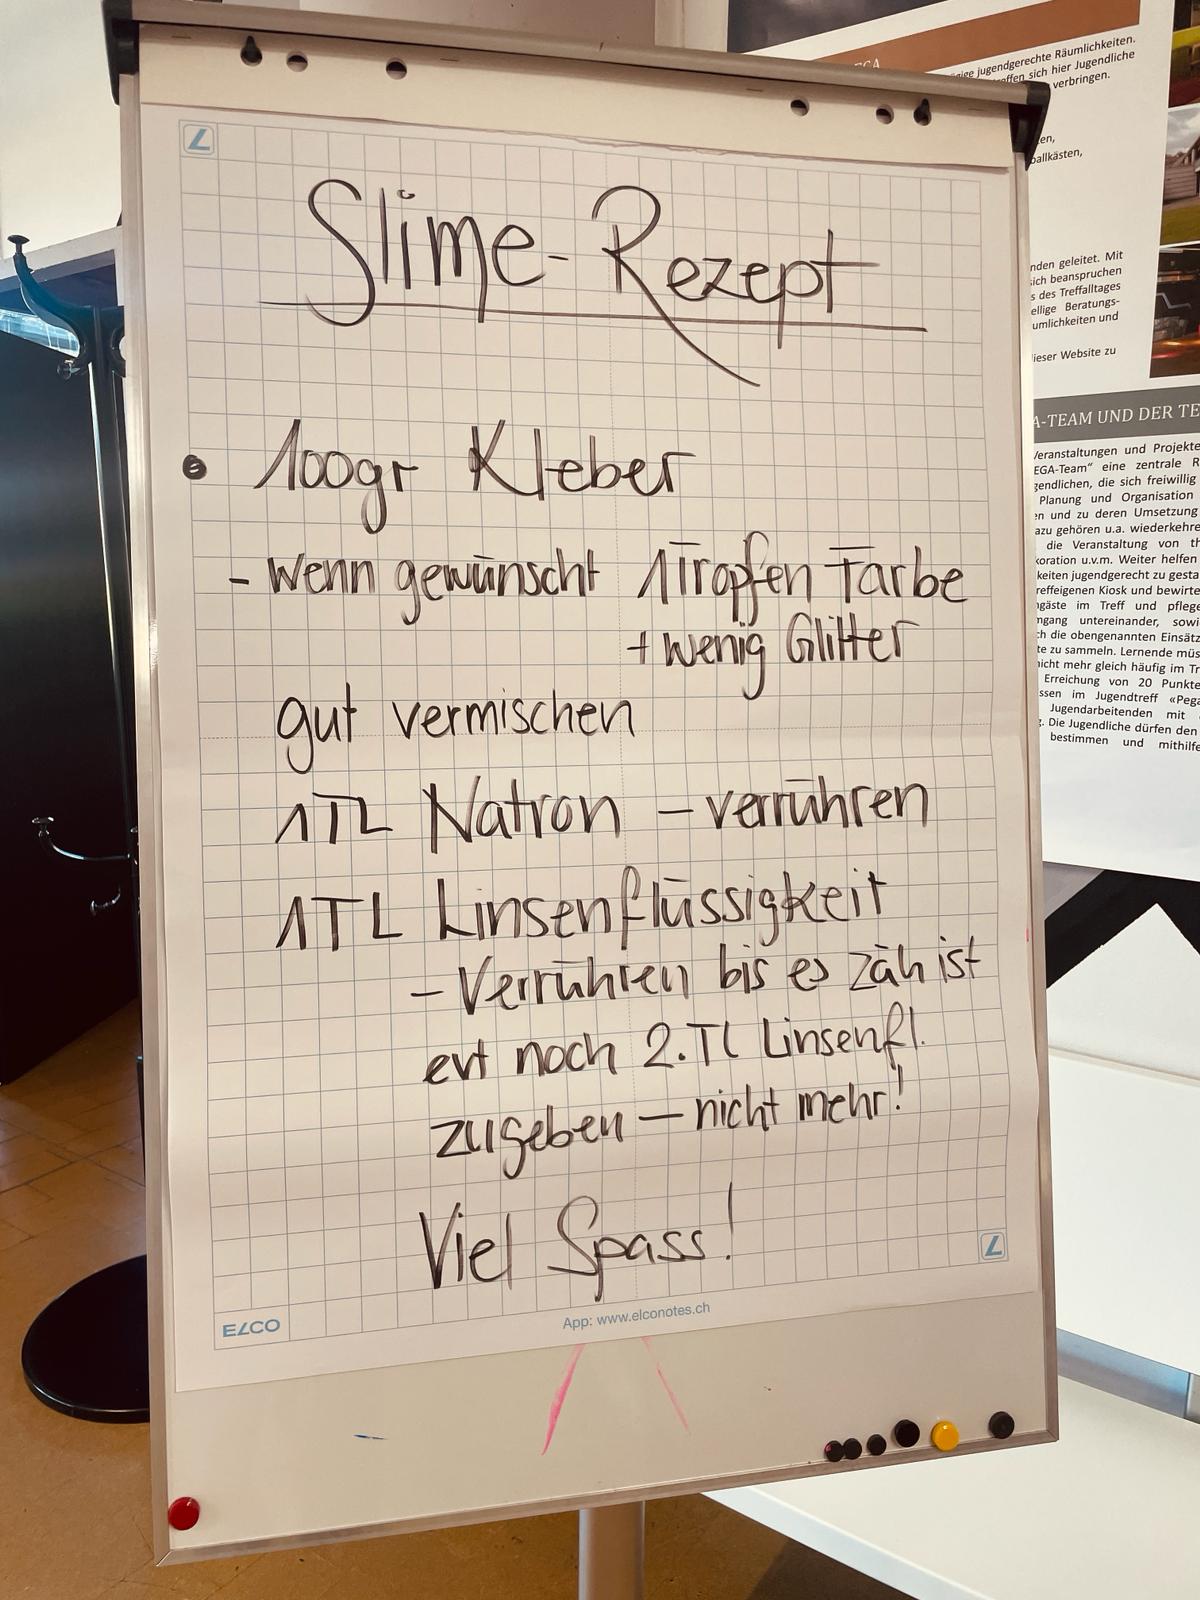 Slime-Rezept
• 100gr Kleber
- wenn gewünscht 1 Tropfen Farbe
+ wenig Glitter
gut vermischen
1TL Natron - verrühren
1TL Linsenflüssigkeit
- Verrühren bis es zäh ist
evt noch 2.TL Linsenfl.
zugeben - nicht mehr!
Viel Spass!
ELCO
App: www.elconotes.ch
jugendgerechte Räumlichkeiten.
sich hier Jugendliche
verbringen.
geleitet. Mit
beanspruchen
des Treffalltages
Beratungs-
und
Website zu
A-TEAM UND DER TE
Veranstaltungen und Projekte
EGA-Team“ eine zentrale R
die sich freiwillig
Planung und Organisation
und zu deren Umsetzung
gehören u.a. wiederkehre
die Veranstaltung von th
u.v.m. Weiter helfen
jugendgerecht zu gesta
Kiosk und bewirte
im Treff und pflege
untereinander, sowi
die obengenannten Einsätz
zu sammeln. Lernende müs
nicht mehr gleich häufig im Tr
Erreichung von 20 Punkte
im Jugendtreff «Pega
Jugendarbeitenden mit
Die Jugendliche dürfen den
bestimmen und mithilfe